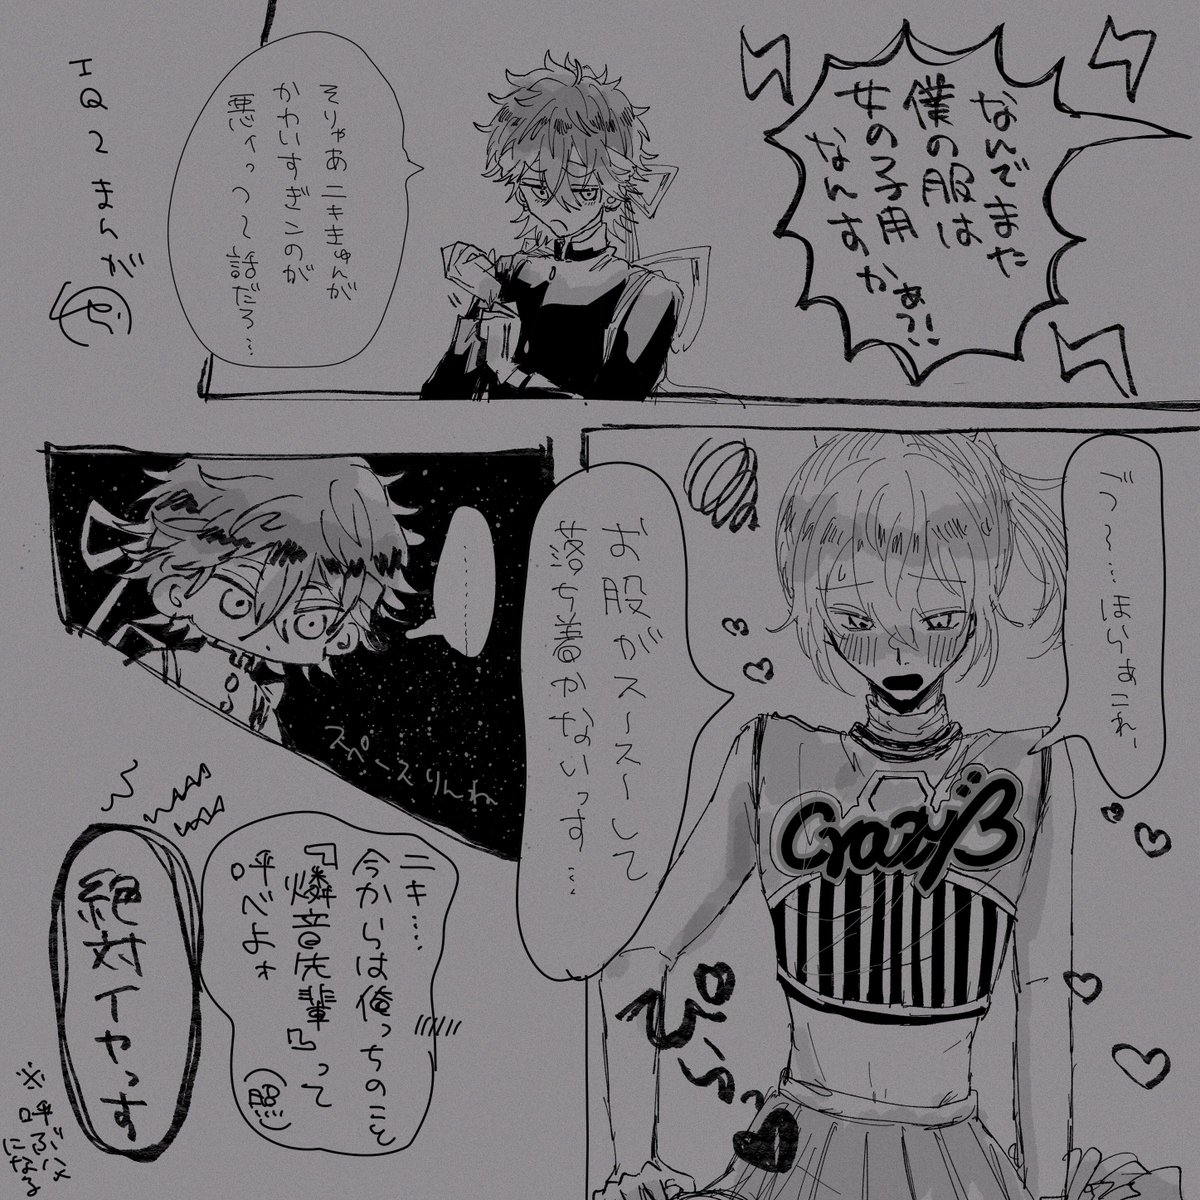 なんでまた
僕の服は
女の子用
なんすかぁ?!
そりゃあニキきゅんが
かわいすぎンのが
悪ィっつ〜話だろ…
IQ2まんが
ゔ〜…ほらぁこれ、
お股がス〜ス〜して
落ち着かないっす…
CrazyB
………
スペースりんね
ニキ…
今からは俺っちのこと
『燐音先輩』って
呼べよォ
(照)
絶対イヤっす
※呼ぶハメ
になる